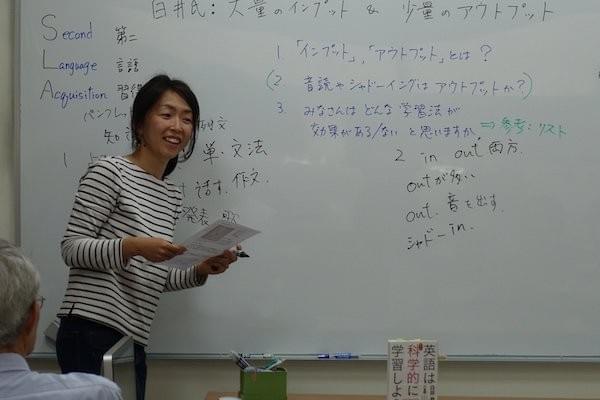 白井氏：大量のインプット & 少量のアウトプット
Second 第二
Language 言語
Acquisition 習
パンフレ
知 例文
1 単・文法
話す. 作文.
発表 歌
1 「インプット」,「アウトプット」とは?
(2. 音読やシャドーイングは アウトプットか?)
3. みなさんは どんな 学習法が
効果がある/ない と思いますか. ⇒ 参考:リスト
2 in out 両方.
outが多い
out. 音を出す.
シャドーin.
英語は
科学的に
学習しよう